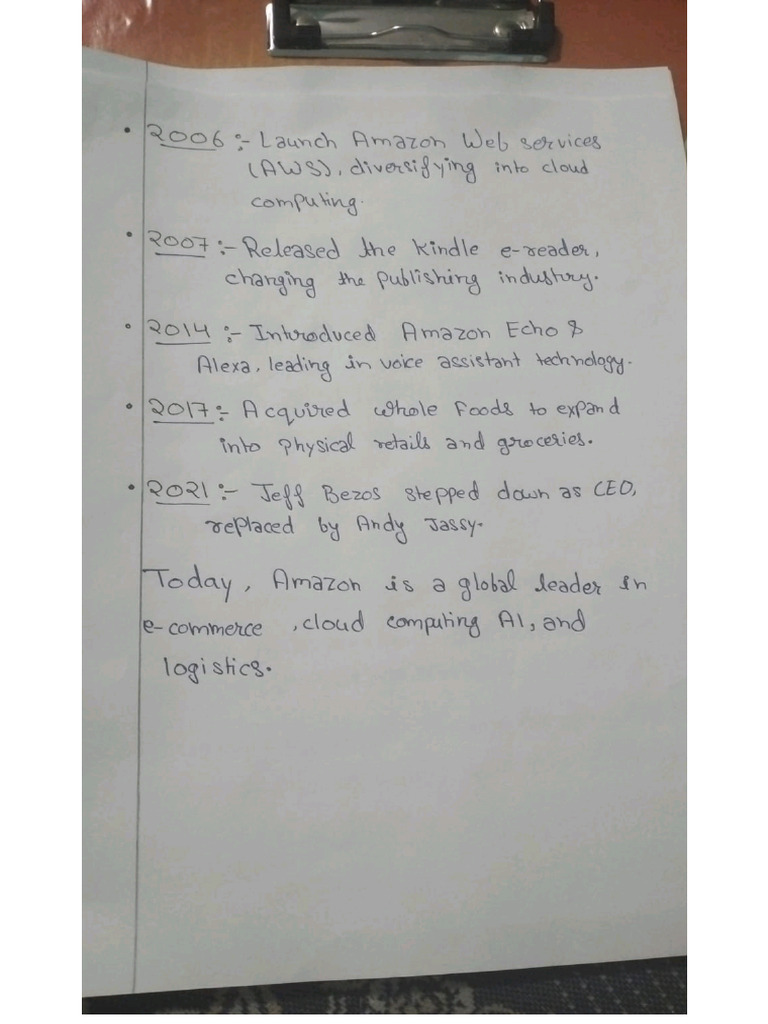 • 2006 :- Launch Amazon Web services
(AWS), diversifying into cloud
computing.
• 2007 :- Released the Kindle e-reader,
changing the publishing industry.
• 2014 :- Introduced Amazon Echo &
Alexa, leading in voice assistant technology.
• 2017 :- Acquired whole Foods to expand
into physical retails and groceries.
• 2021 :- Jeff Bezos stepped down as CEO,
replaced by Andy Jassy.
Today, Amazon is a global leader in
e-commerce, cloud computing AI, and
logistics.